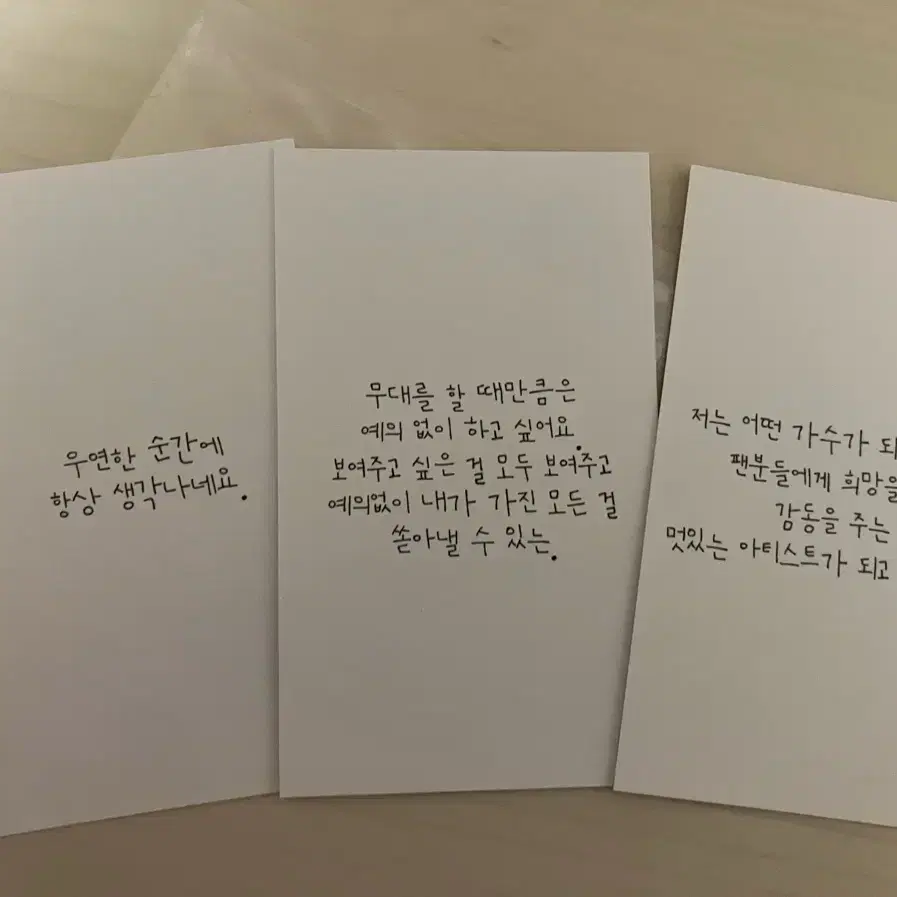 우연한 순간에
항상 생각나네요.
무대를 할 때만큼은
예의 없이 하고 싶어요.
보여주고 싶은 걸 모두 보여주고
예의없이 내가 가진 모든 걸
쏟아낼 수 있는.
저는 어떤 가수가 되
팬분들에게 희망을
감동을 주는
멋있는 아티스트가 되고